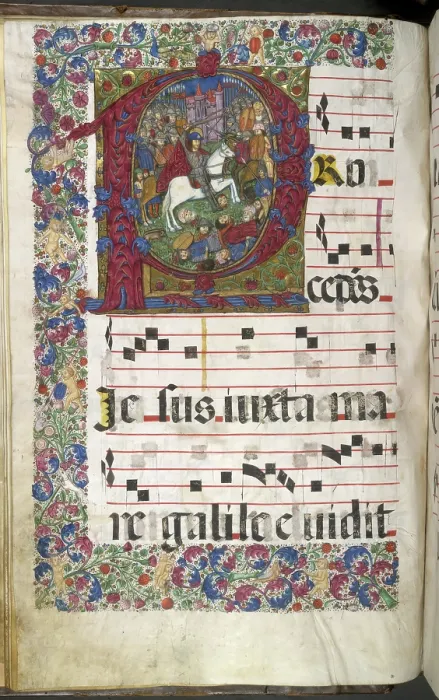 PRo
ceďs
Je sus iuxta ma
re galilee uidit